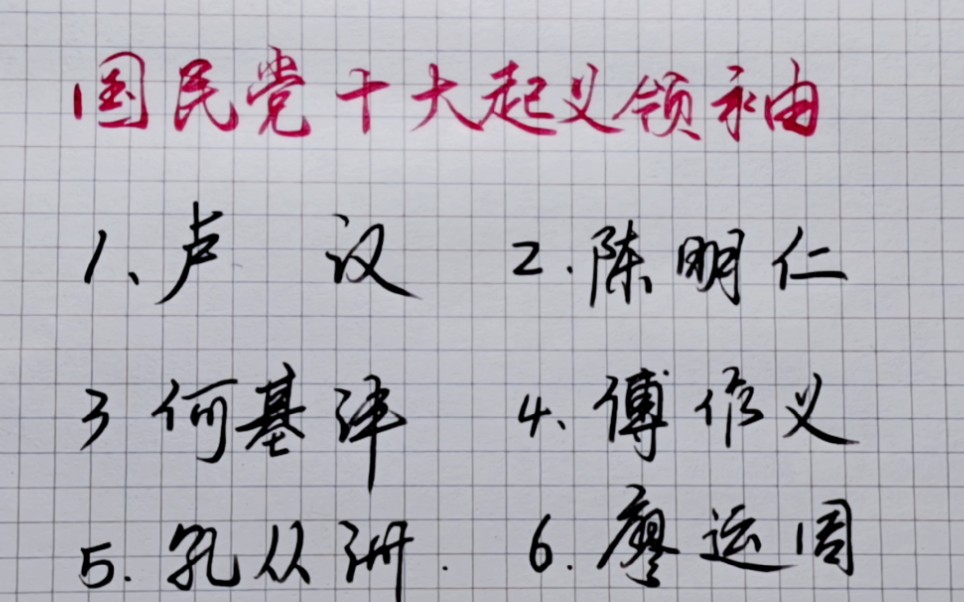 国民党十大起义领袖
1、卢汉 2.陈明仁
3 何基沣 4、傅作义
5.孔从洲. 6.廖运周